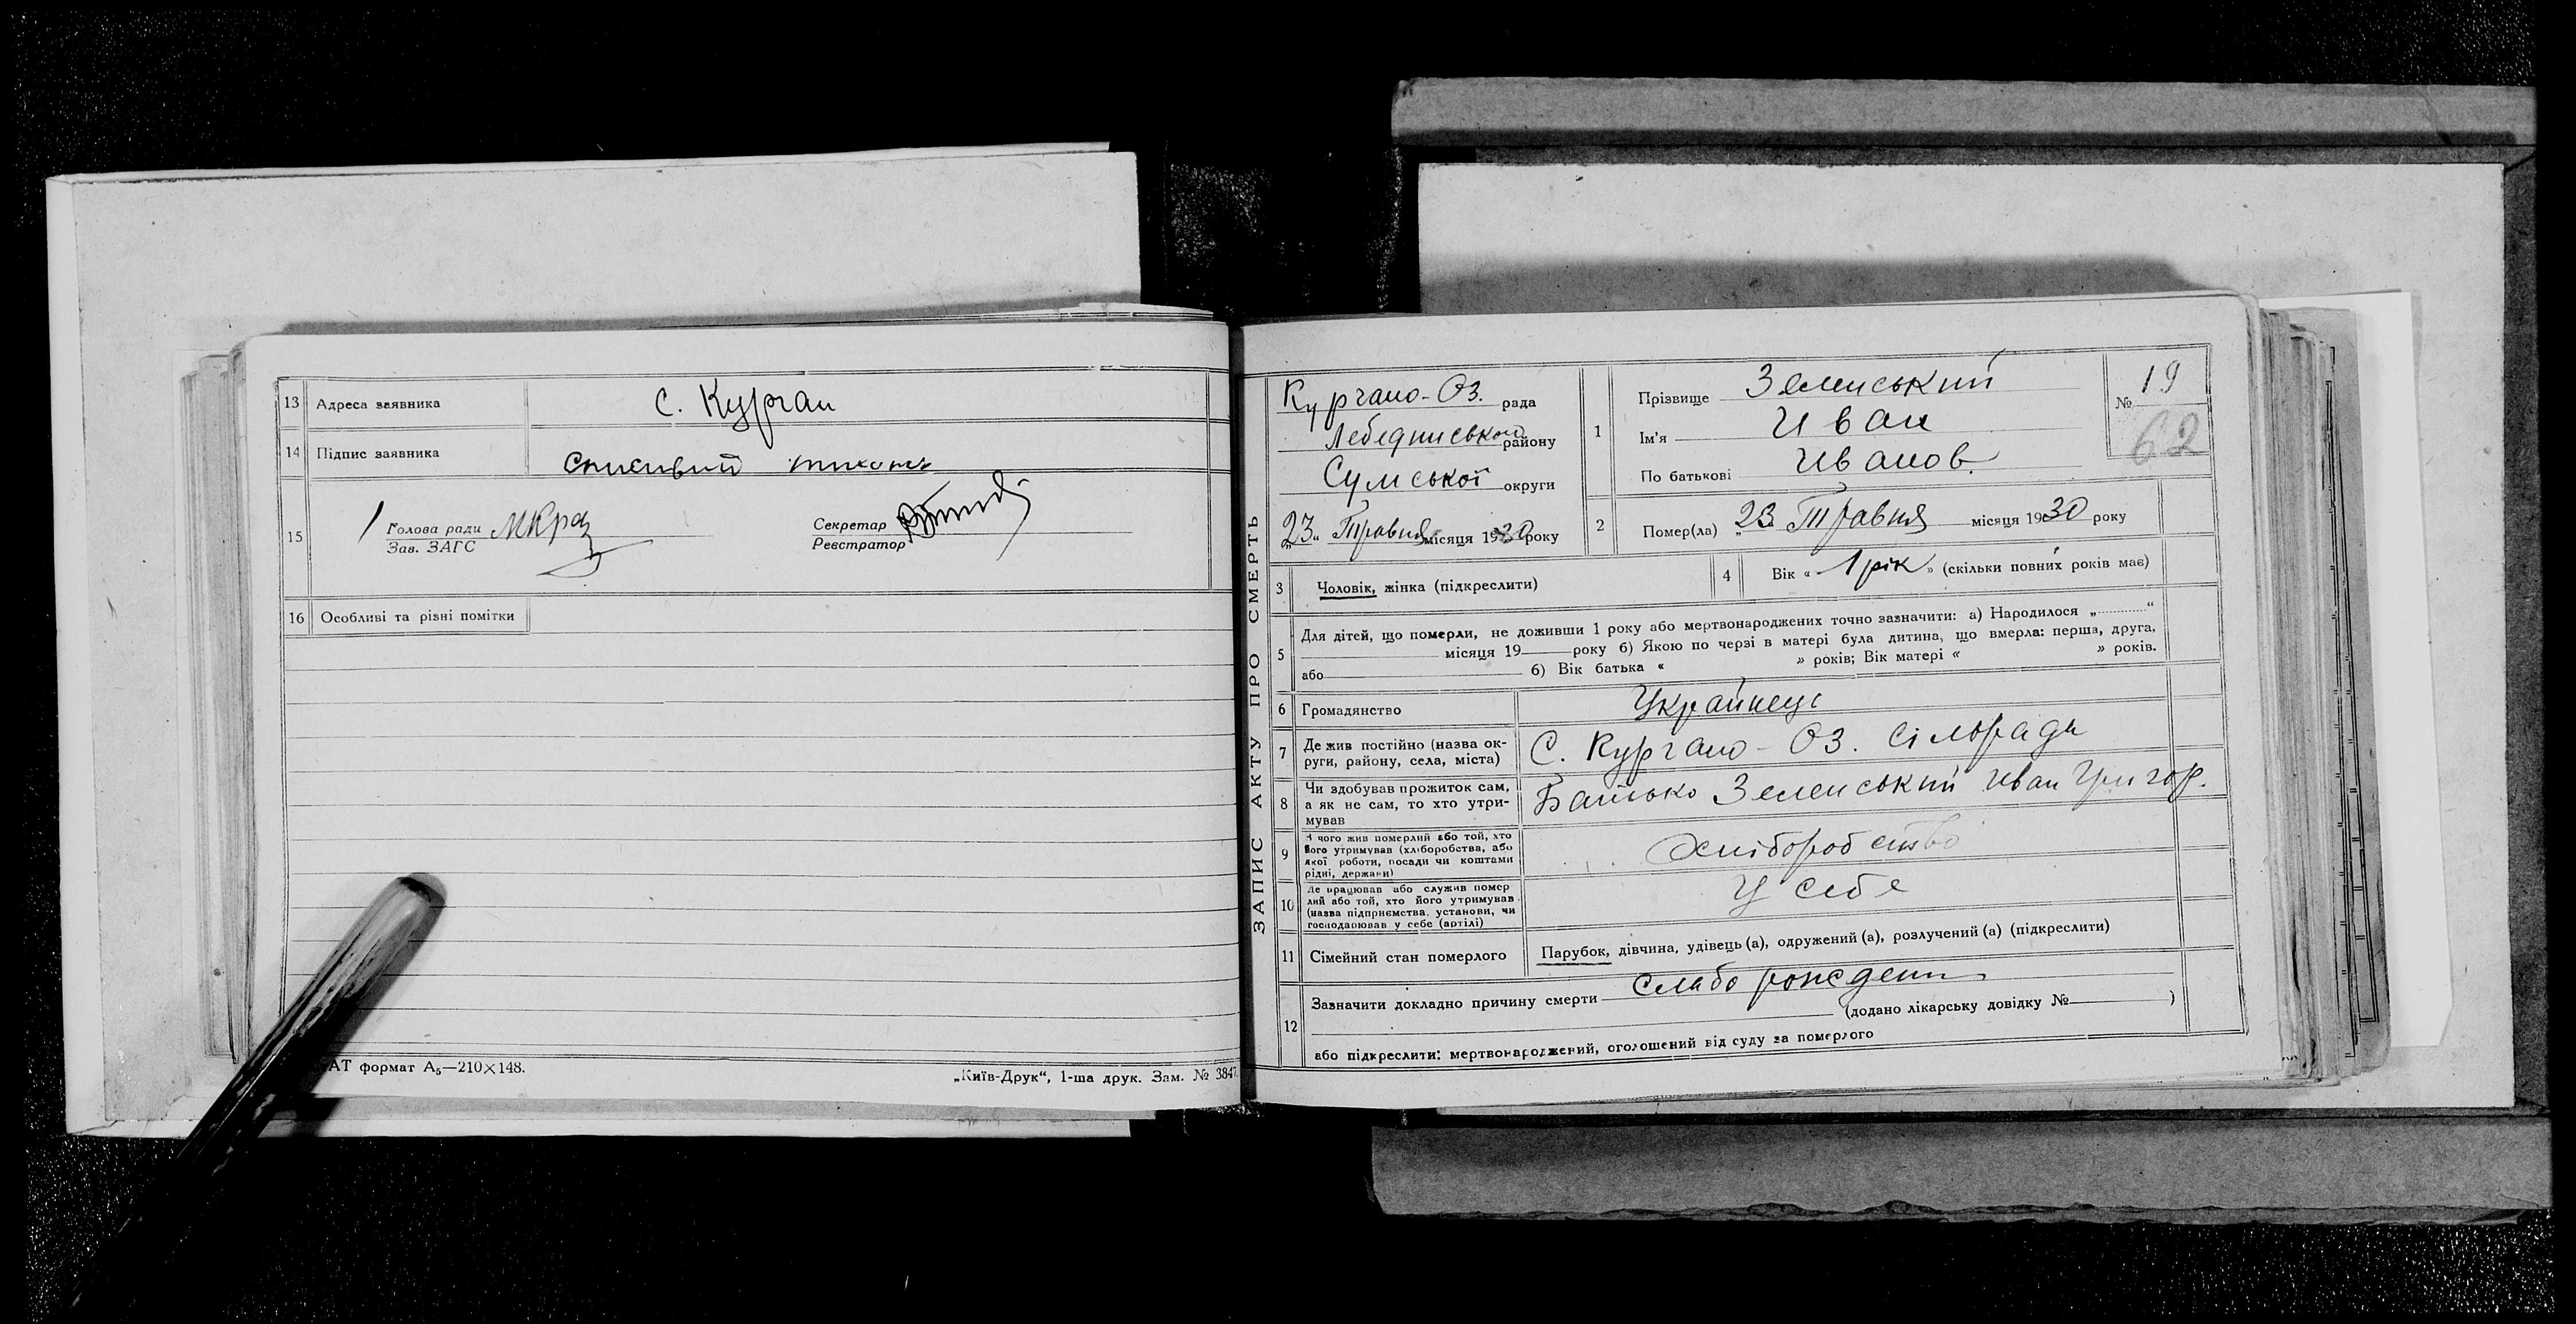 13 Адреса заявника С. Курган
14 Підпис заявника
15 Голова ради МКрац
Зав. ЗАГС
Секретар
Реєстратор
16 Особливі та різні помітки
АТ формат А₅—210×148.
„Київ-Друк“, 1-ша друк. Зам. № 3847.
ЗАПИС АКТУ ПРО СМЕРТЬ
Кургано-Оз. рада
Лебединського району
Сумської округи
„23“ Травня місяця 1930 року
1 Прізвище Зеленський
Ім'я Иван
По батькові Иванов.
№ 19
62
2 Помер(ла) „23 Травня місяця 1930 року
3 Чоловік, жінка (підкреслити)
4 Вік « 1 рік » (скільки повних років має)
5 Для дітей, що померли, не доживши 1 року або мертвонароджених точно зазначити: а) Народилося „ “
місяця 19 року б) Якою по черзі в матері була дитина, що вмерла: перша, друга,
або б) Вік батька « » років; Вік матері « » років.
6 Громадянство Українець
7 Де жив постійно (назва ок-
руги, району, села, міста) С. Кургано-Оз. Сільради
8 Чи здобував прожиток сам,
а як не сам, то хто утри-
мував Батько Зеленський Иван Григор.
9 З чого жив померлий або той, хто
його утримував (хліборобства, або
якої роботи, посади чи коштами
рідні, держави) Хліборобство
10 Де працював або служив помер
лий або той, хто його утримував
(назва підприємства, установи, чи
господарював у себе (артілі) У себе
11 Сімейний стан померлого Парубок, дівчина, удівець (а), одружений (а), розлучений (а) (підкреслити)
12 Зазначити докладно причину смерти Слабо рожден
(додано лікарську довідку № )
або підкреслити: мертвонароджений, оголошений від суду за померлого